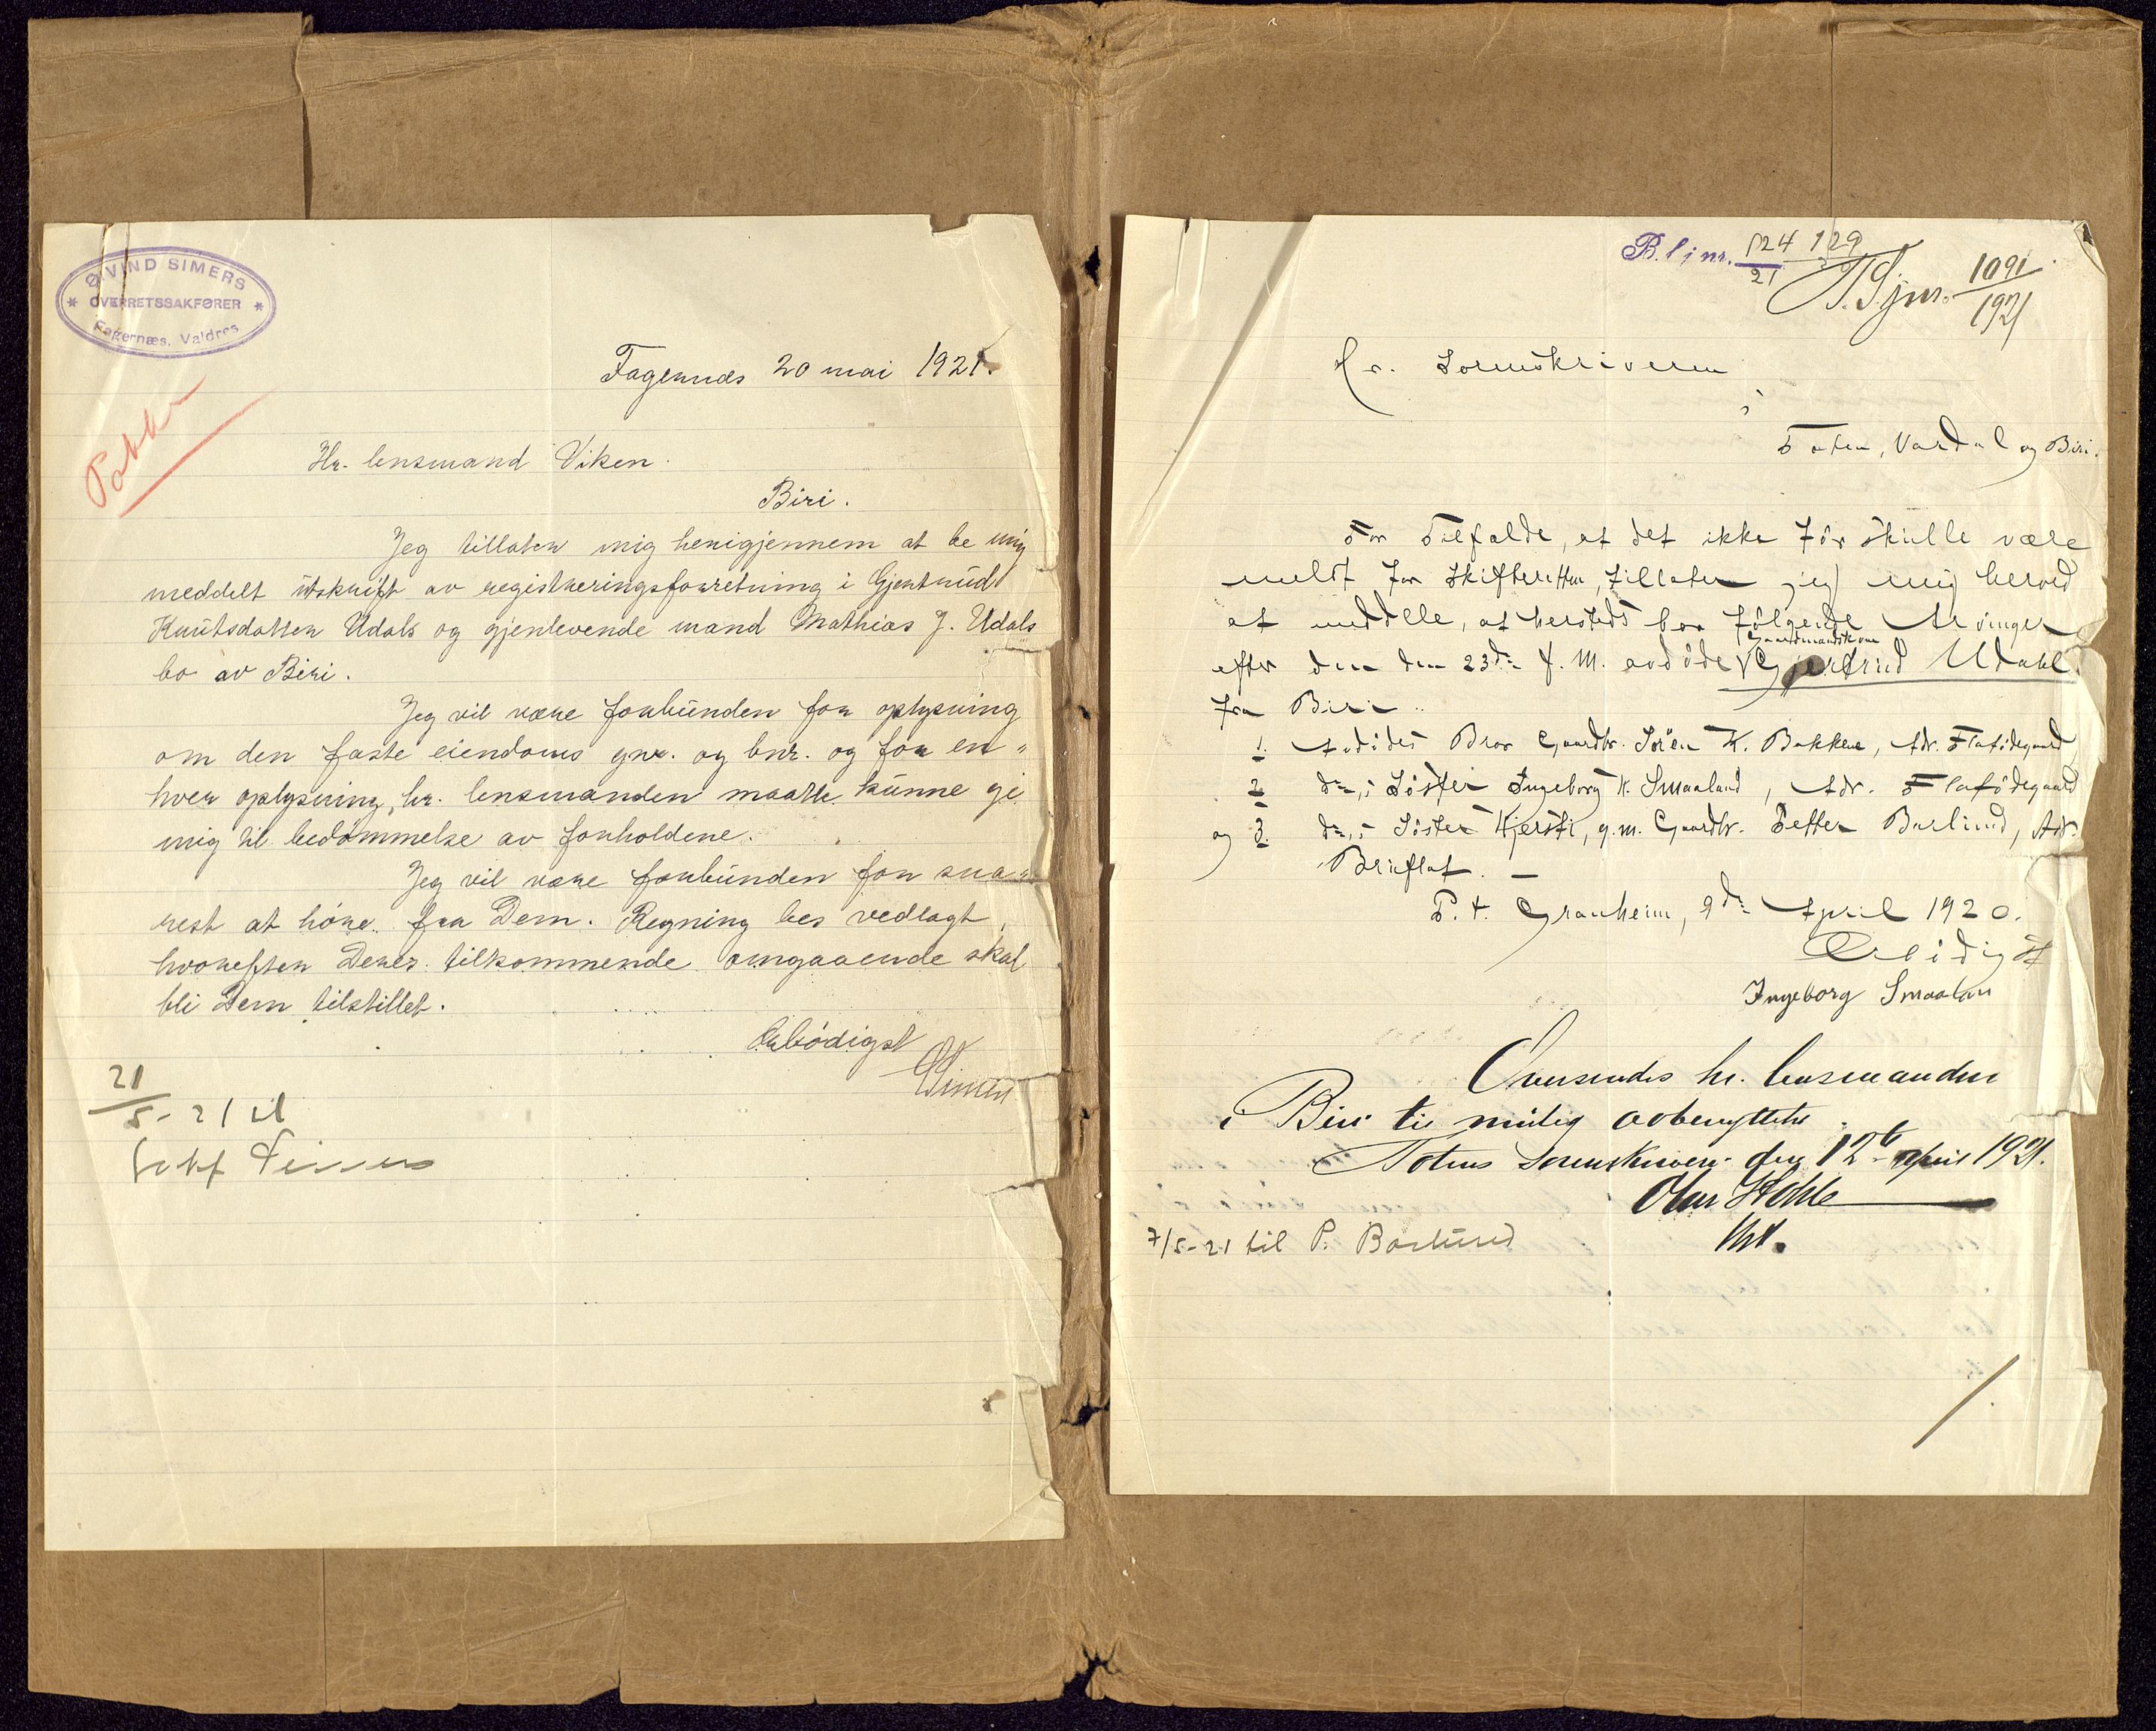 ØIVIND SIMERS
* OVERRETSSAKFØRER *
Fagernæs, Valdres
Fagernæs 20 mai 1921.
Hr. lensmand Viken.
Biri.
Jeg tillater mig herigjennem at be mig
meddelt utskrift av registreringsforretning i Gjertrud
Knutsdatter Udals og gjenlevende mand Mathias J. Udals
bo av Biri.
Jeg vil være forbunden for oplysning
om den faste eiendoms gnr. og bnr. og for en„
hver oplysning, hr. lensmanden maatte kunne gi
mig til bedømmelse av forholdene.
Jeg vil være forbunden for sna„
rest at høre fra Dem. Regning bes vedlagt,
hvorefter Deres tilkommende omgaaende skal
bli Dem tilstillet.
Ærbødigst
Simers
21/5-21 til
B.l j nr. 124 129
21
T.S.jnr. 1091/1921
Hr. Sorenskriveren
i
Toten, Vardal og Biri.
For Tilfælde, at det ikke før skulle være
meldt for Skifteretten, tillater jeg mig herved
at meddele, at hersteds bor følgende Arvinger
efter den den 23de f. M. avdøde Gaardmandskone Gjertrud Udahl.
fra Biri..
1. Avdødes Bror Gaardbr. Sören K. Bakkene, Adr. Flatødegaard
2 do, s Søster Ingeborg K. Smaaland, Adr. Flatødegaard
og 3. do, s Søster Kjersti, g.m. Gaardbr. Petter Barlund, Adr.
Bruflat. –
P. t. Granheim, 9de April 1920.
Ærbødigst
Ingeborg Smaalan
Oversendes hr. lensmanden
i Biri til mulig avbenyttelse.
Totens Sorenskriveri den 12te april 1921.
7/5-21 til P. Barlund